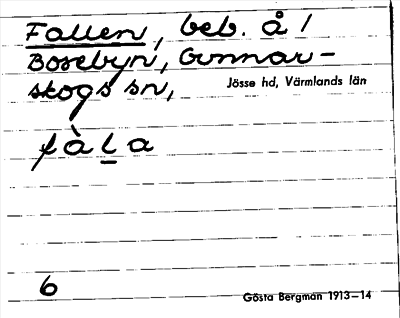 Fallen, beb. å 1
Bosebyn, Gunnar-
skogs sn,
Jösse hd, Värmlands län
fàla
6
Gösta Bergman 1913–14